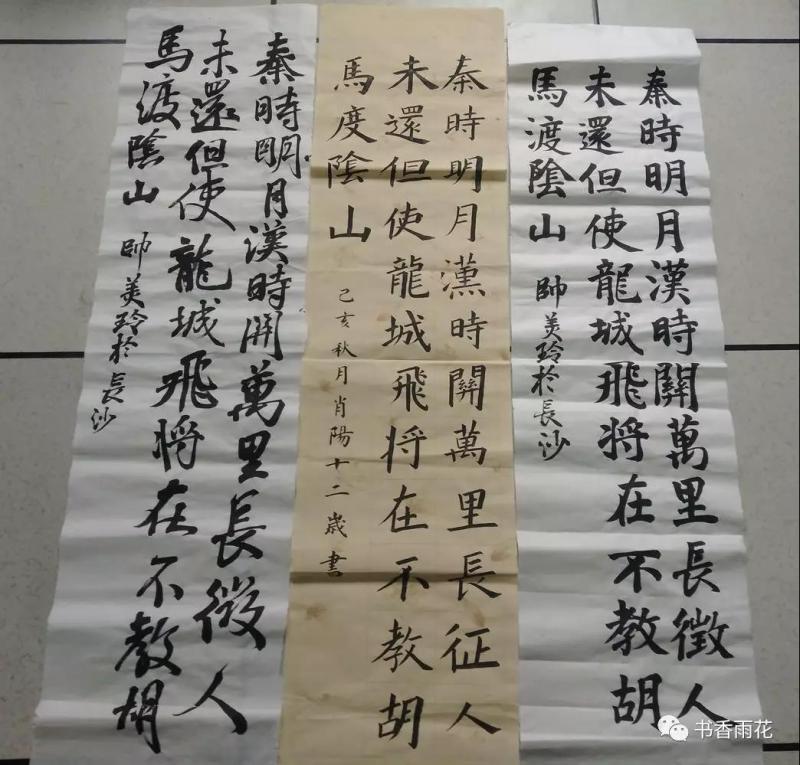 秦時明月漢時關萬里長徵人
未還但使龍城飛将在不教胡
馬渡陰山 帥美玲於長沙
秦時明月漢時關萬里長征人
未還但使龍城飛将在不教胡
馬度陰山 己亥秋月肖陽十二歲書
秦時明月漢時關萬里長徵人
未還但使龍城飛将在不教胡
馬渡陰山 帥美玲於長沙
书香雨花